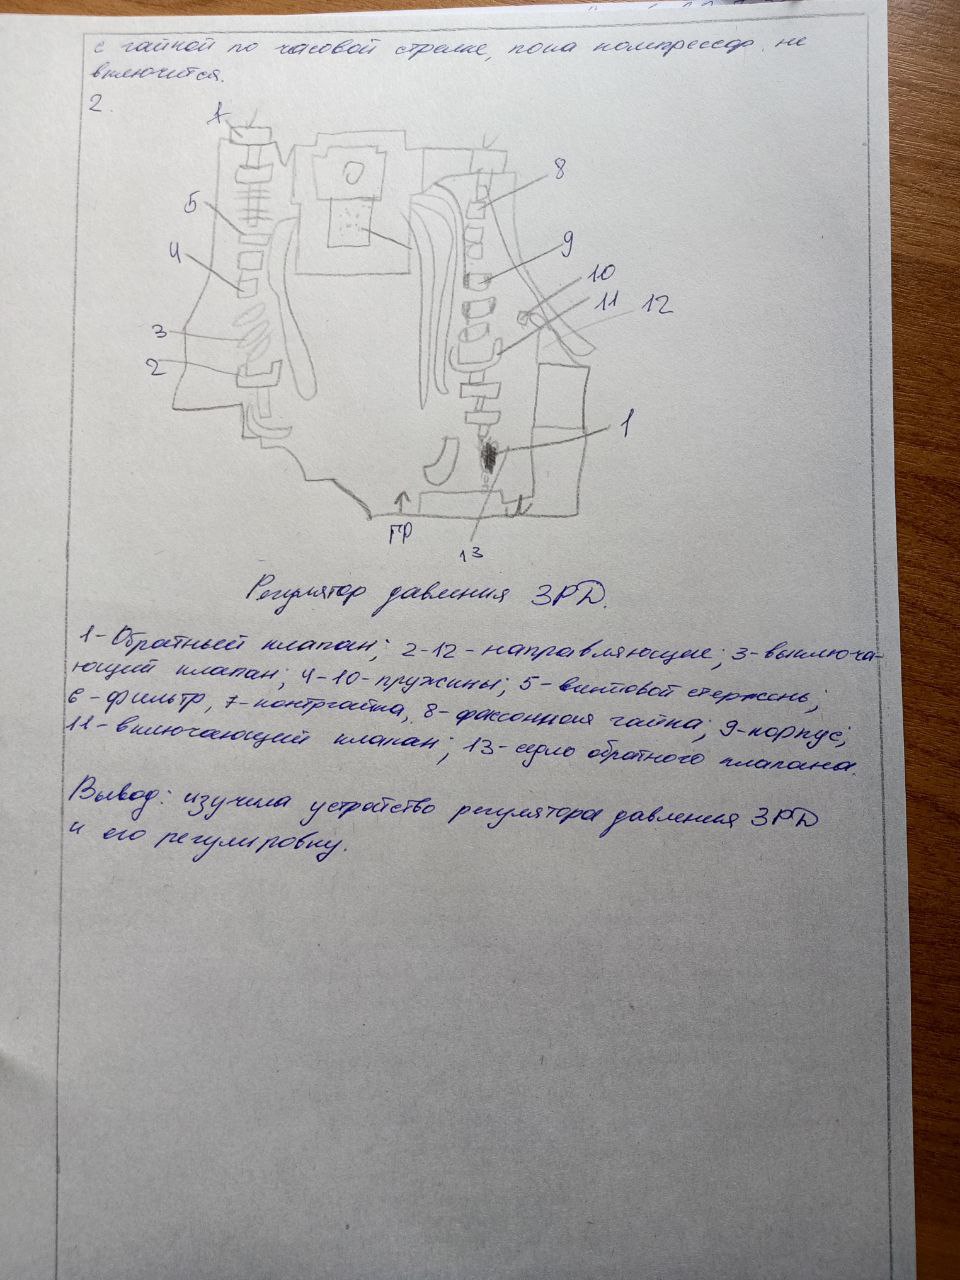 с гайкой по часовой стрелке, пока компрессор не
включится.
2.
1
8
5
9
4
10
11
12
3
2
1
ГР
13
Регулятор давления 3РД.
1-Обратный клапан; 2-12-направляющие; 3-выключа-
ющий клапан; 4-10-пружины; 5-винтовой стержень;
6-фильтр, 7-контргайка, 8-фасонная гайка; 9-корпус;
11-включающий клапан; 13-седло обратного клапана.
Вывод: изучила устройство регулятора давления 3РД
и его регулировку.